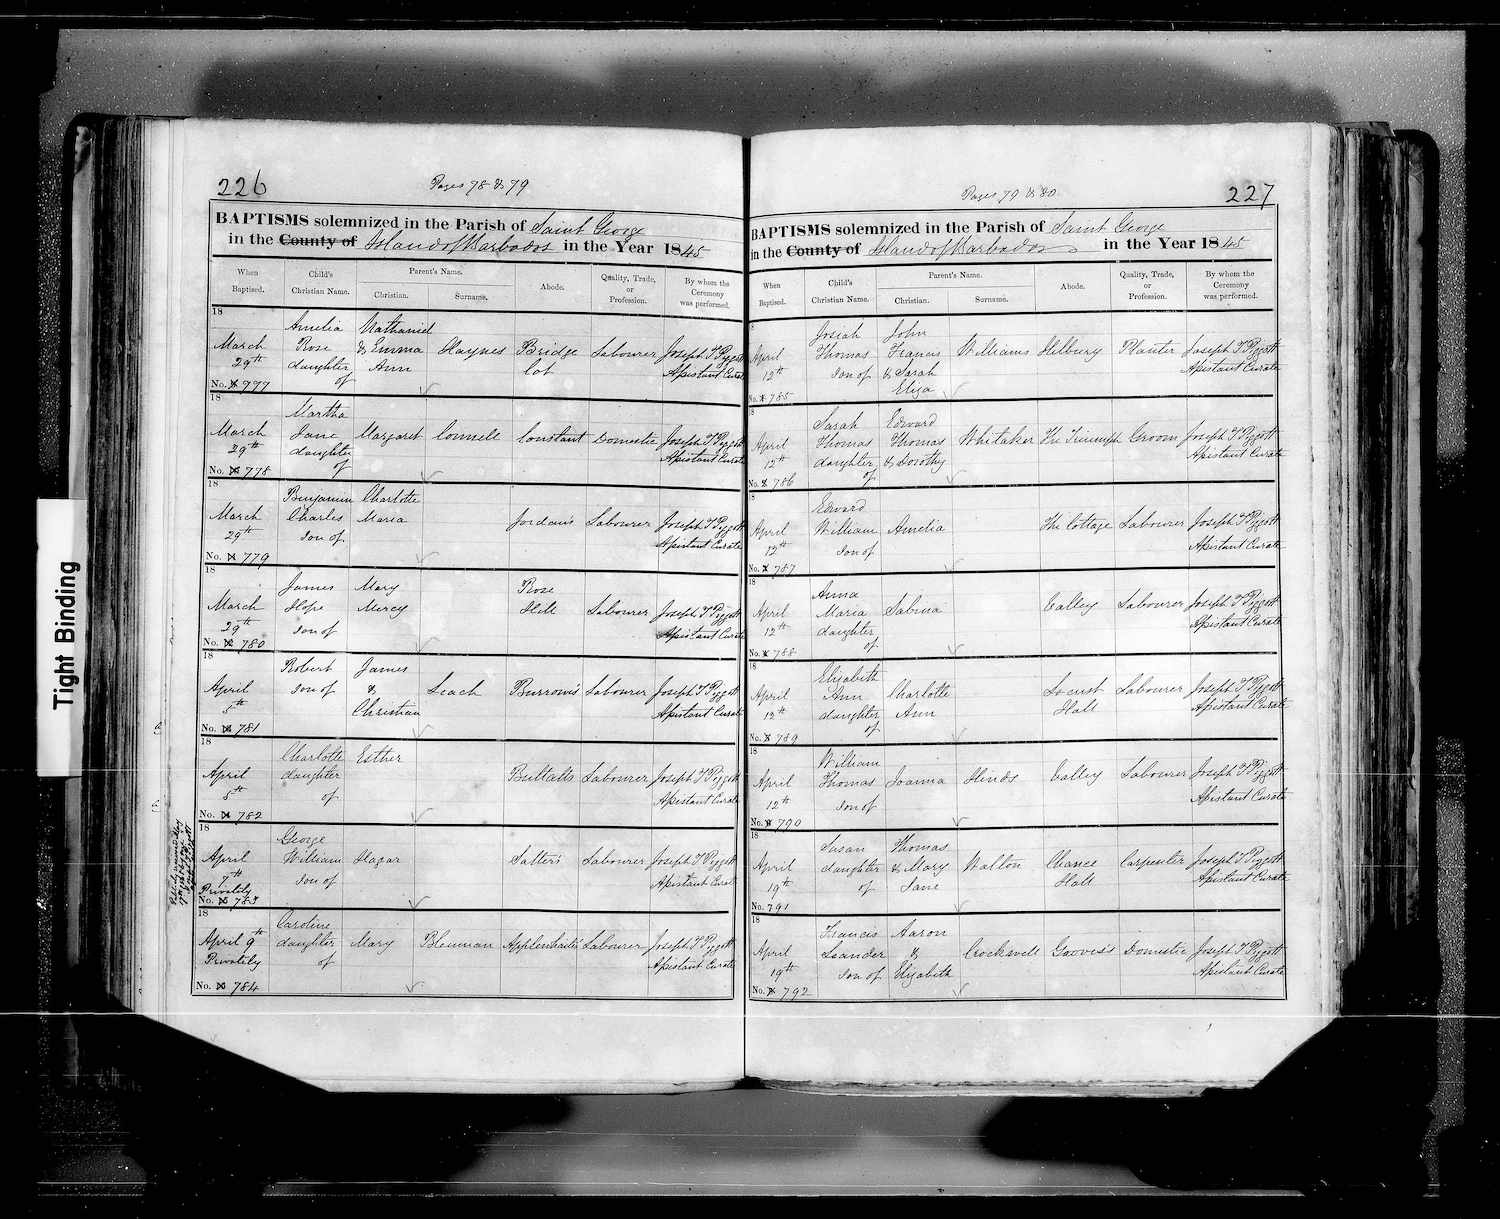 Tight Binding
226
Pages 78 & 79
BAPTISMS solemnized in the Parish of Saint George
in the County of Island of Barbados in the Year 1845
When Baptised.
Child's Christian Name.
Parent's Name.
Christian.
Surname.
Abode.
Quality, Trade, or Profession.
By whom the Ceremony was performed.
18
March 29th
No. 777
Amelia Rose daughter of
Nathaniel & Emma Ann
Haynes
Bridge Cot
Labourer
Joseph T Piggott Assistant Curate
18
March 29th
No. 778
Martha Jane daughter of
Margaret
Connell
Constant
Domestic
Joseph T Piggott Assistant Curate
18
March 29th
No. 779
Benjamin Charles son of
Charlotte Maria
Jordan's
Labourer
Joseph T Piggott Assistant Curate
18
March 29th
No. 780
James Hope son of
Mary Mercy
Rose Hill
Labourer
Joseph T Piggott Assistant Curate
18
April 5th
No. 781
Robert son of
James & Christian
Leach
Burrow's
Labourer
Joseph T Piggott Assistant Curate
18
April 5th
No. 782
Charlotte daughter of
Esther
Buttalls
Labourer
Joseph T Piggott Assistant Curate
18
April 7th Privately
No. 783
George William son of
Hagar
Salter's
Labourer
Joseph T Piggott Assistant Curate
18
April 9th Privately
No. 784
Caroline daughter of
Mary
Blenman
Applewhaite's
Labourer
Joseph T Piggott Assistant Curate
227
Pages 79 & 80
BAPTISMS solemnized in the Parish of Saint George
in the County of Island of Barbados in the Year 1845
When Baptised.
Child's Christian Name.
Parent's Name.
Christian.
Surname.
Abode.
Quality, Trade, or Profession.
By whom the Ceremony was performed.
18
April 12th
No. 785
Josiah Thomas son of
John Francis & Sarah Eliza
Williams
Hilbury
Planter
Joseph T Piggott Assistant Curate
18
April 12th
No. 786
Sarah Thomas daughter of
Edward Thomas & Dorothy
Whitaker
The Triumph
Groom
Joseph T Piggott Assistant Curate
18
April 12th
No. 787
Edward William son of
Amelia
The Cottage
Labourer
Joseph T Piggott Assistant Curate
18
April 12th
No. 788
Anna Maria daughter of
Sabina
Valley
Labourer
Joseph T Piggott Assistant Curate
18
April 12th
No. 789
Elizabeth Ann daughter of
Charlotte Ann
Locust Hall
Labourer
Joseph T Piggott Assistant Curate
18
April 12th
No. 790
William Thomas son of
Joanna
Hinds
Valley
Labourer
Joseph T Piggott Assistant Curate
18
April 19th
No. 791
Susan daughter of
Thomas & Mary Jane
Walton
Chance Hall
Carpenter
Joseph T Piggott Assistant Curate
18
April 19th
No. 792
Francis Leander son of
Aaron & Elizabeth
Crockwell
Groves's
Domestic
Joseph T Piggott Assistant Curate